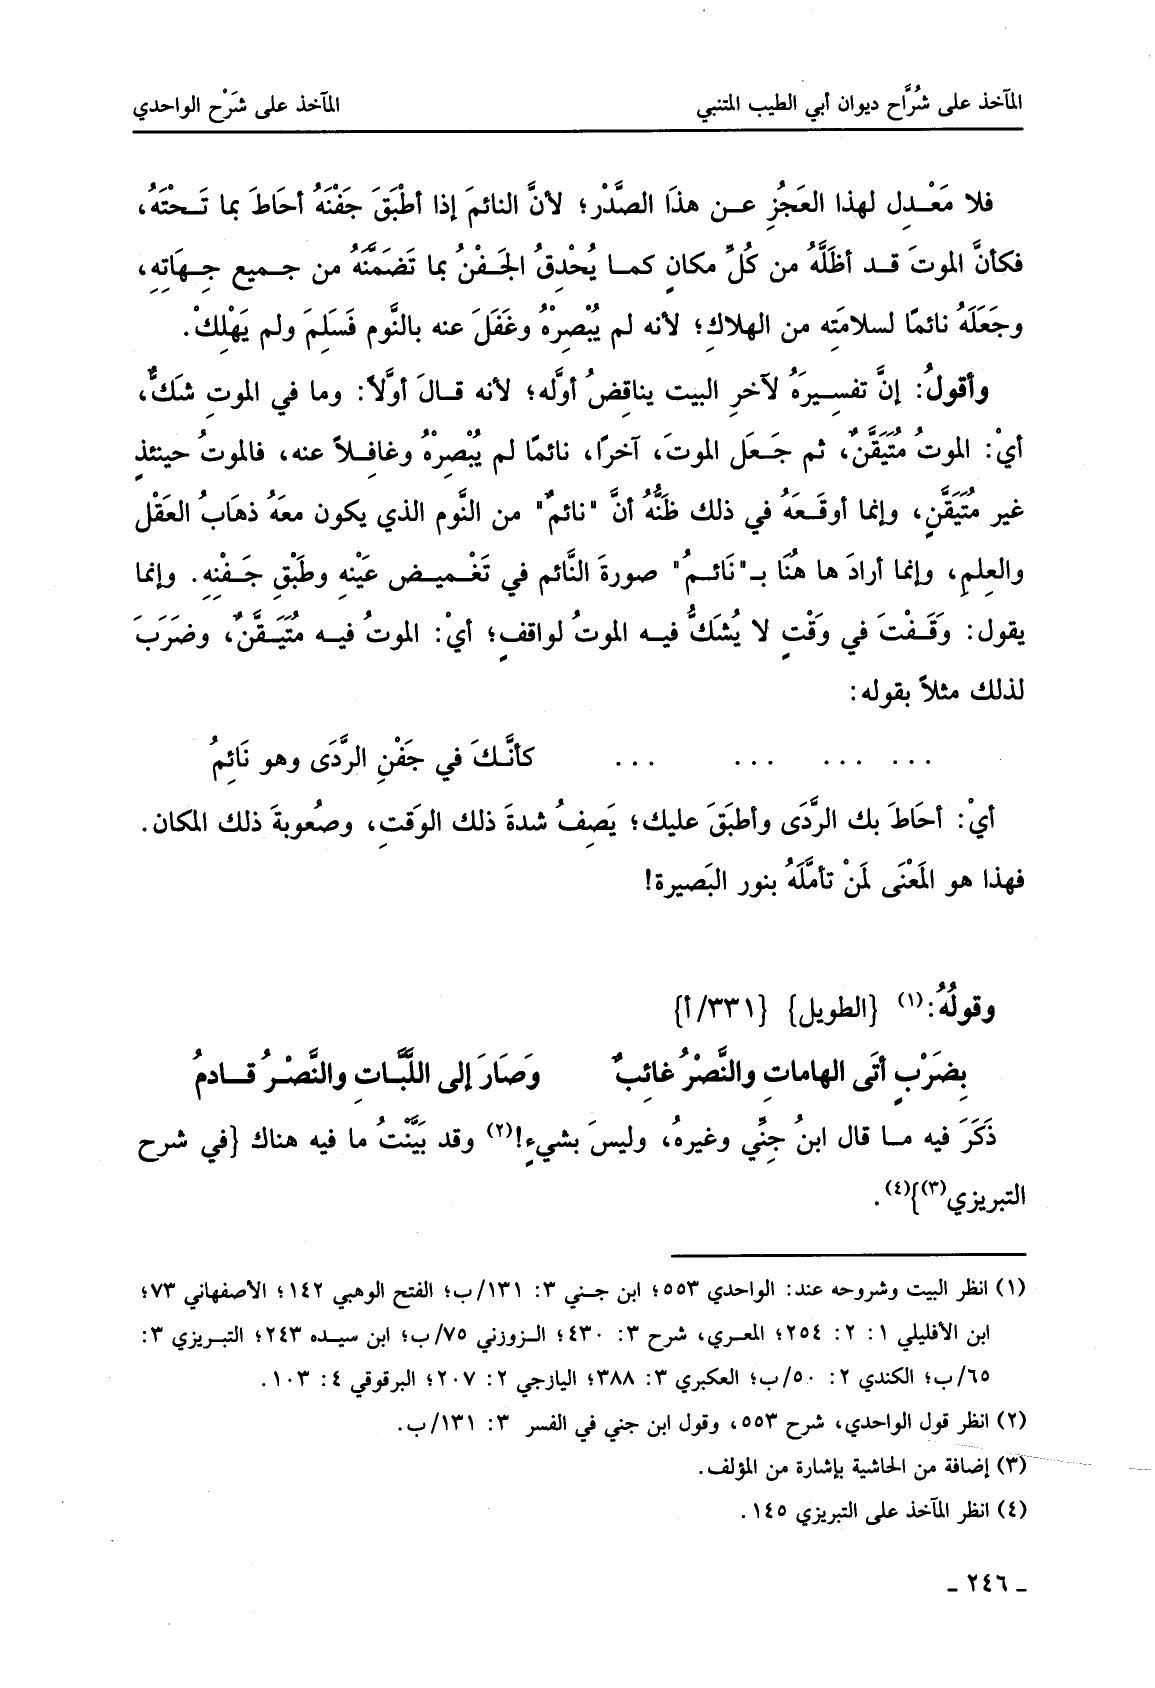 المآخذ على شُرَّاح ديوان أبي الطيب المتنبي المآخذ على شَرْح الواحدي
فلا مَعْدِل لهذا العَجُزِ عن هذَا الصَّدْر؛ لأنَّ النائمَ إذا أطْبَقَ جَفْنَهُ أحَاطَ بما تَحْتَهُ،
فكأنَّ الموتَ قد أظَلَّهُ من كُلِّ مكانٍ كما يُحْدِقُ الجَفْنُ بما تَضَمَّنَهُ من جميع جِهَاتِهِ،
وجَعَلَهُ نائمًا لسلامَتِه من الهلاكِ؛ لأنه لم يُبْصِرْهُ وغَفَلَ عنه بالنَّوم فَسَلِمَ ولم يَهْلِكْ.
وأقولُ: إنَّ تفسِيرَهُ لآخرِ البيت يناقِضُ أوَّله؛ لأنه قالَ أوَّلاً: وما في الموتِ شكٌّ،
أيْ: الموتُ مُتَيَقَّنٌ، ثم جَعَل الموتَ، آخرًا، نائمًا لم يُبْصِرْهُ وغافِلاً عنه، فالموتُ حينئذٍ
غير مُتَيَقَّنٍ، وإنما أوقَعَهُ في ذلك ظَنُّهُ أنَّ "نائمٌ" من النَّوم الذي يكون معَهُ ذهَابُ العَقْل
والعِلمِ، وإنما أرادَ ها هُنَا بـ"نَائِمُ" صورةَ النَّائم في تَغْمِيض عَيْنِهِ وطَبْقِ جَفنِهِ. وإنما
يقول: وَقَفْتَ في وَقْتٍ لا يُشَكُّ فيه الموتُ لواقفٍ؛ أيْ: الموتُ فيه مُتَيَقَّنٌ، وضَرَبَ
لذلك مثلاً بقوله:
... ... ... ... كأنَّكَ في جَفْنِ الرَّدَى وهو نَائِمُ
أيْ: أحَاطَ بك الرَّدَى وأطبَقَ عليك؛ يَصِفُ شدةَ ذلك الوَقتِ، وصُعوبةَ ذلك المكان.
فهذا هو المَعْنَى لمَنْ تأمَّلَهُ بنور البَصيرة!
وقولُهُ:(١) {الطويل} {٣٣١/أ}
بِضَرْبٍ أتَى الهاماتِ والنَّصْرُ غائبٌ وَصَارَ إلى اللَّبَّاتِ والنَّصْرُ قادمُ
ذَكَرَ فيه ما قال ابنُ جِنِّي وغيرهُ، وليسَ بشيءٍ!(٢) وقد بَيَّنْتُ ما فيه هناك {في شرح
التبريزي(٣)}(٤).
(١) انظر البيت وشروحه عند: الواحدي ٥٥٣؛ ابن جني ٣: ١٣١/ب؛ الفتح الوهبي ١٤٢؛ الأصفهاني ٧٣؛
ابن الأفليلي ١: ٢: ٢٥٤؛ المعري، شرح ٣: ٤٣٠؛ الزوزني ٧٥/ب؛ ابن سيده ٢٤٣؛ التبريزي ٣:
٦٥/ب؛ الكندي ٢: ٥٠/ب؛ العكبري ٣: ٣٨٨؛ اليازجي ٢: ٢٠٧؛ البرقوقي ٤: ١٠٣.
(٢) انظر قول الواحدي، شرح ٥٥٣، وقول ابن جني في الفسر ٣: ١٣١/ب.
(٣) إضافة من الحاشية بإشارة من المؤلف.
(٤) انظر المآخذ على التبريزي ١٤٥.
ـ ٢٤٦ ـ